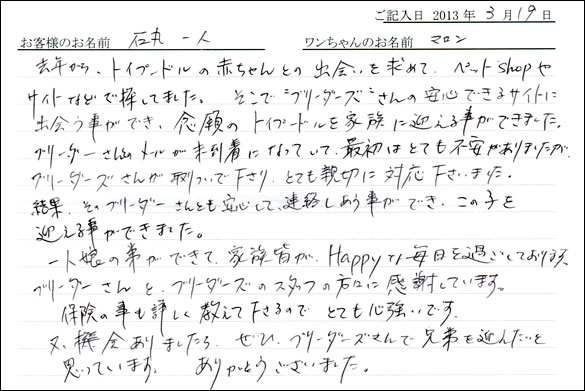 ご記入日 2013 年 3 月 19 日
お客様のお名前 石丸 一人 ワンちゃんのお名前 マロン
去年から、トイプードルの赤ちゃんとの出会いを求めて、ペットshopや
サイトなどで探してました。そこで"ブリーダーズ"さんの安心できるサイトに
出会う事ができ、念願のトイプードルを家族に迎える事ができました。
ブリーダーさんのメールが未到着になっていて、最初はとても不安がありましたが、
ブリーダーズさんが取りついで下さり、とても親切に対応下さいました。
結果、そのブリーダーさんとも安心して、連絡しあう事ができ、この子を
迎える事ができました。
一人娘の事ができて、家族皆が、Happyな毎日を過ごしております。
ブリーダーさんと、ブリーダーズのスタッフの方々に感謝しています。
保険の事も詳しく教えて下さるのでとても心強いです。
又、機会ありましたら、ぜひ、ブリーダーズさんで兄弟を迎えたいと
思っています。ありがとうございました。